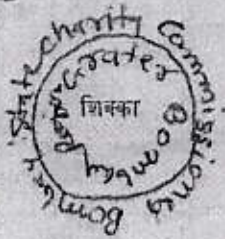 Charity Commissioner Bombay State
Greater Bombay
शिक्का